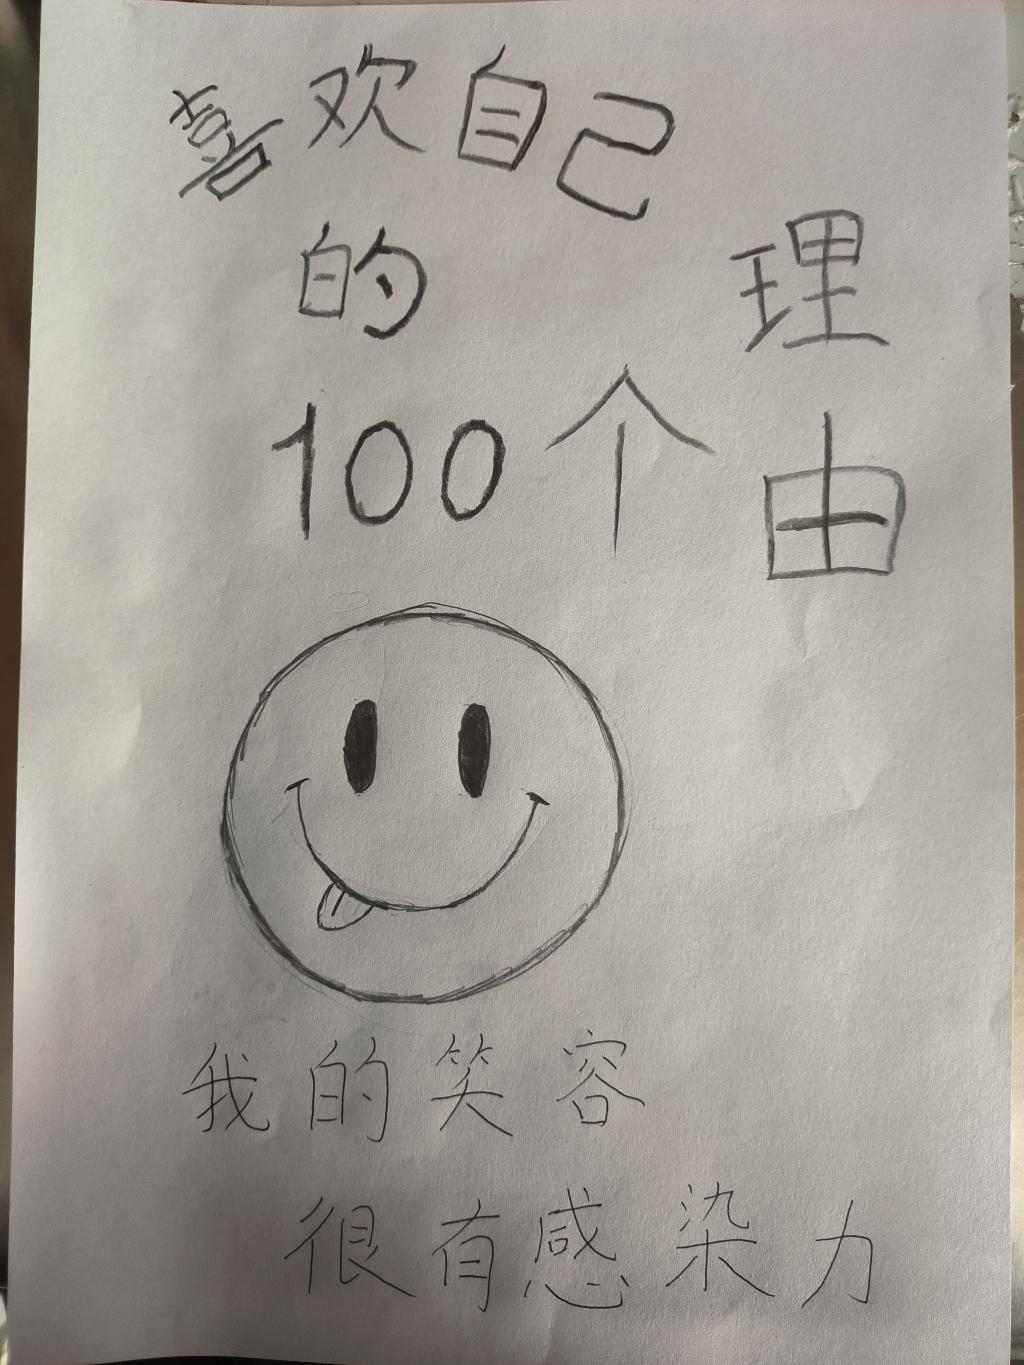 喜欢自己
的
100个
理由
我的笑容
很有感染力